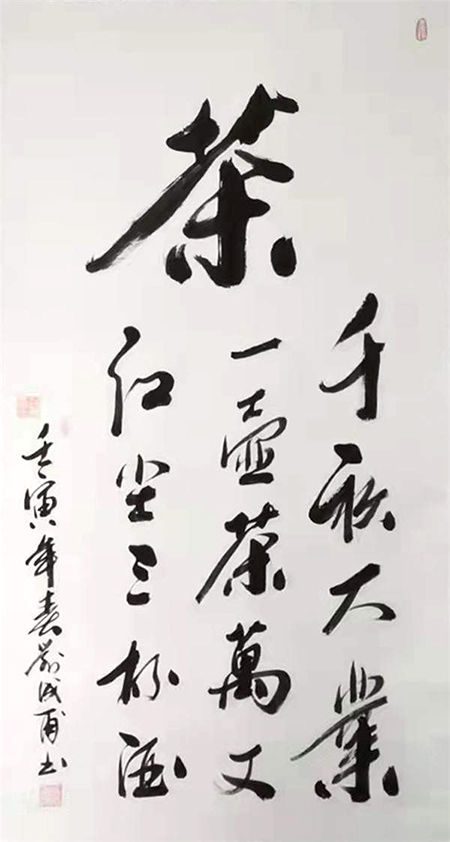 茶
千秋大業
一壺茶萬丈
红尘三杯酒
壬寅年春成甫书